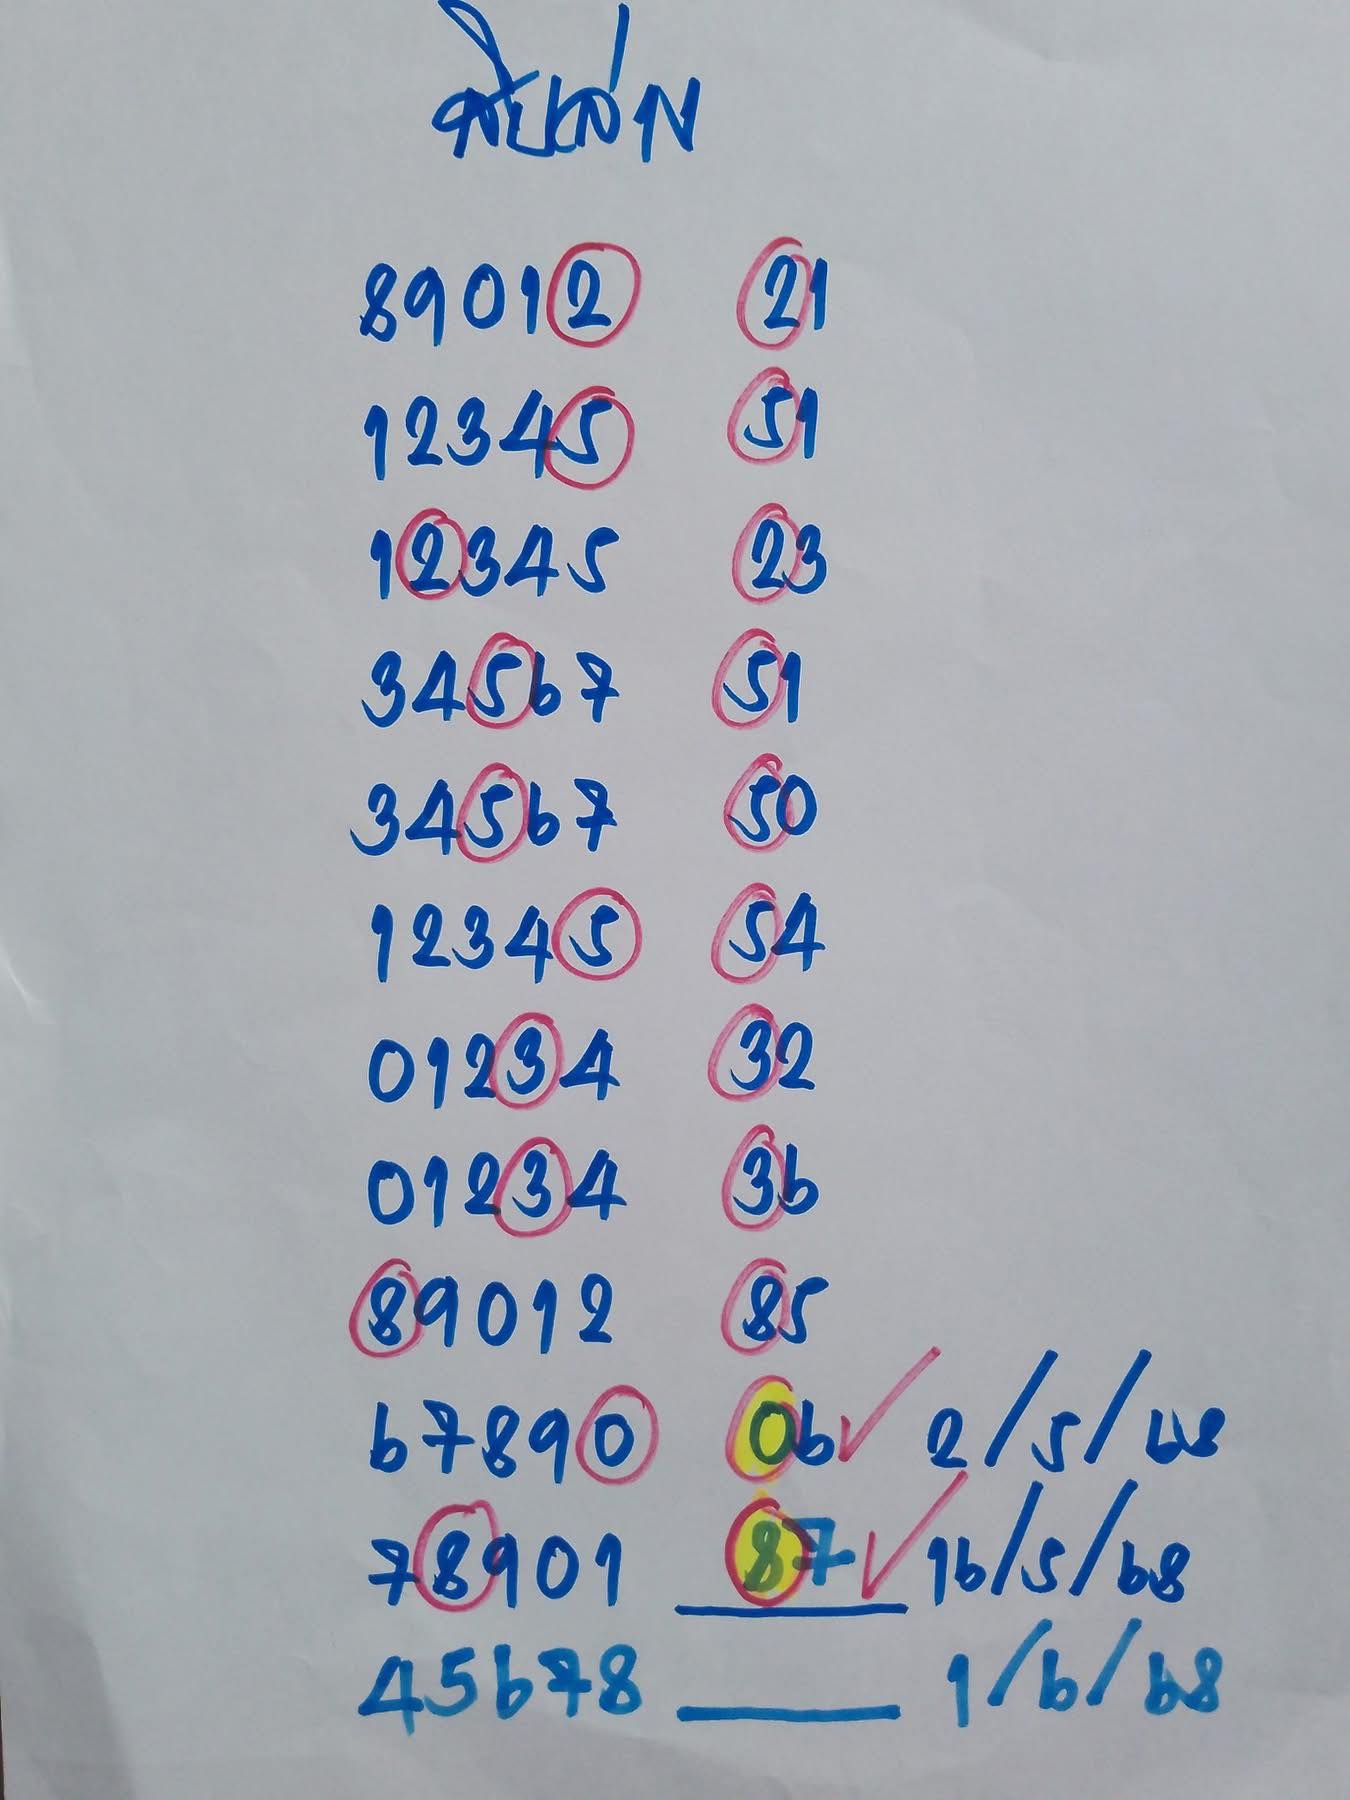 สิบล่าง
89012 21
12345 51
12345 23
34567 51
34567 50
12345 54
01234 32
01234 36
89012 85
67890 06 2/5/68
78901 87 16/5/68
45678 1/6/68